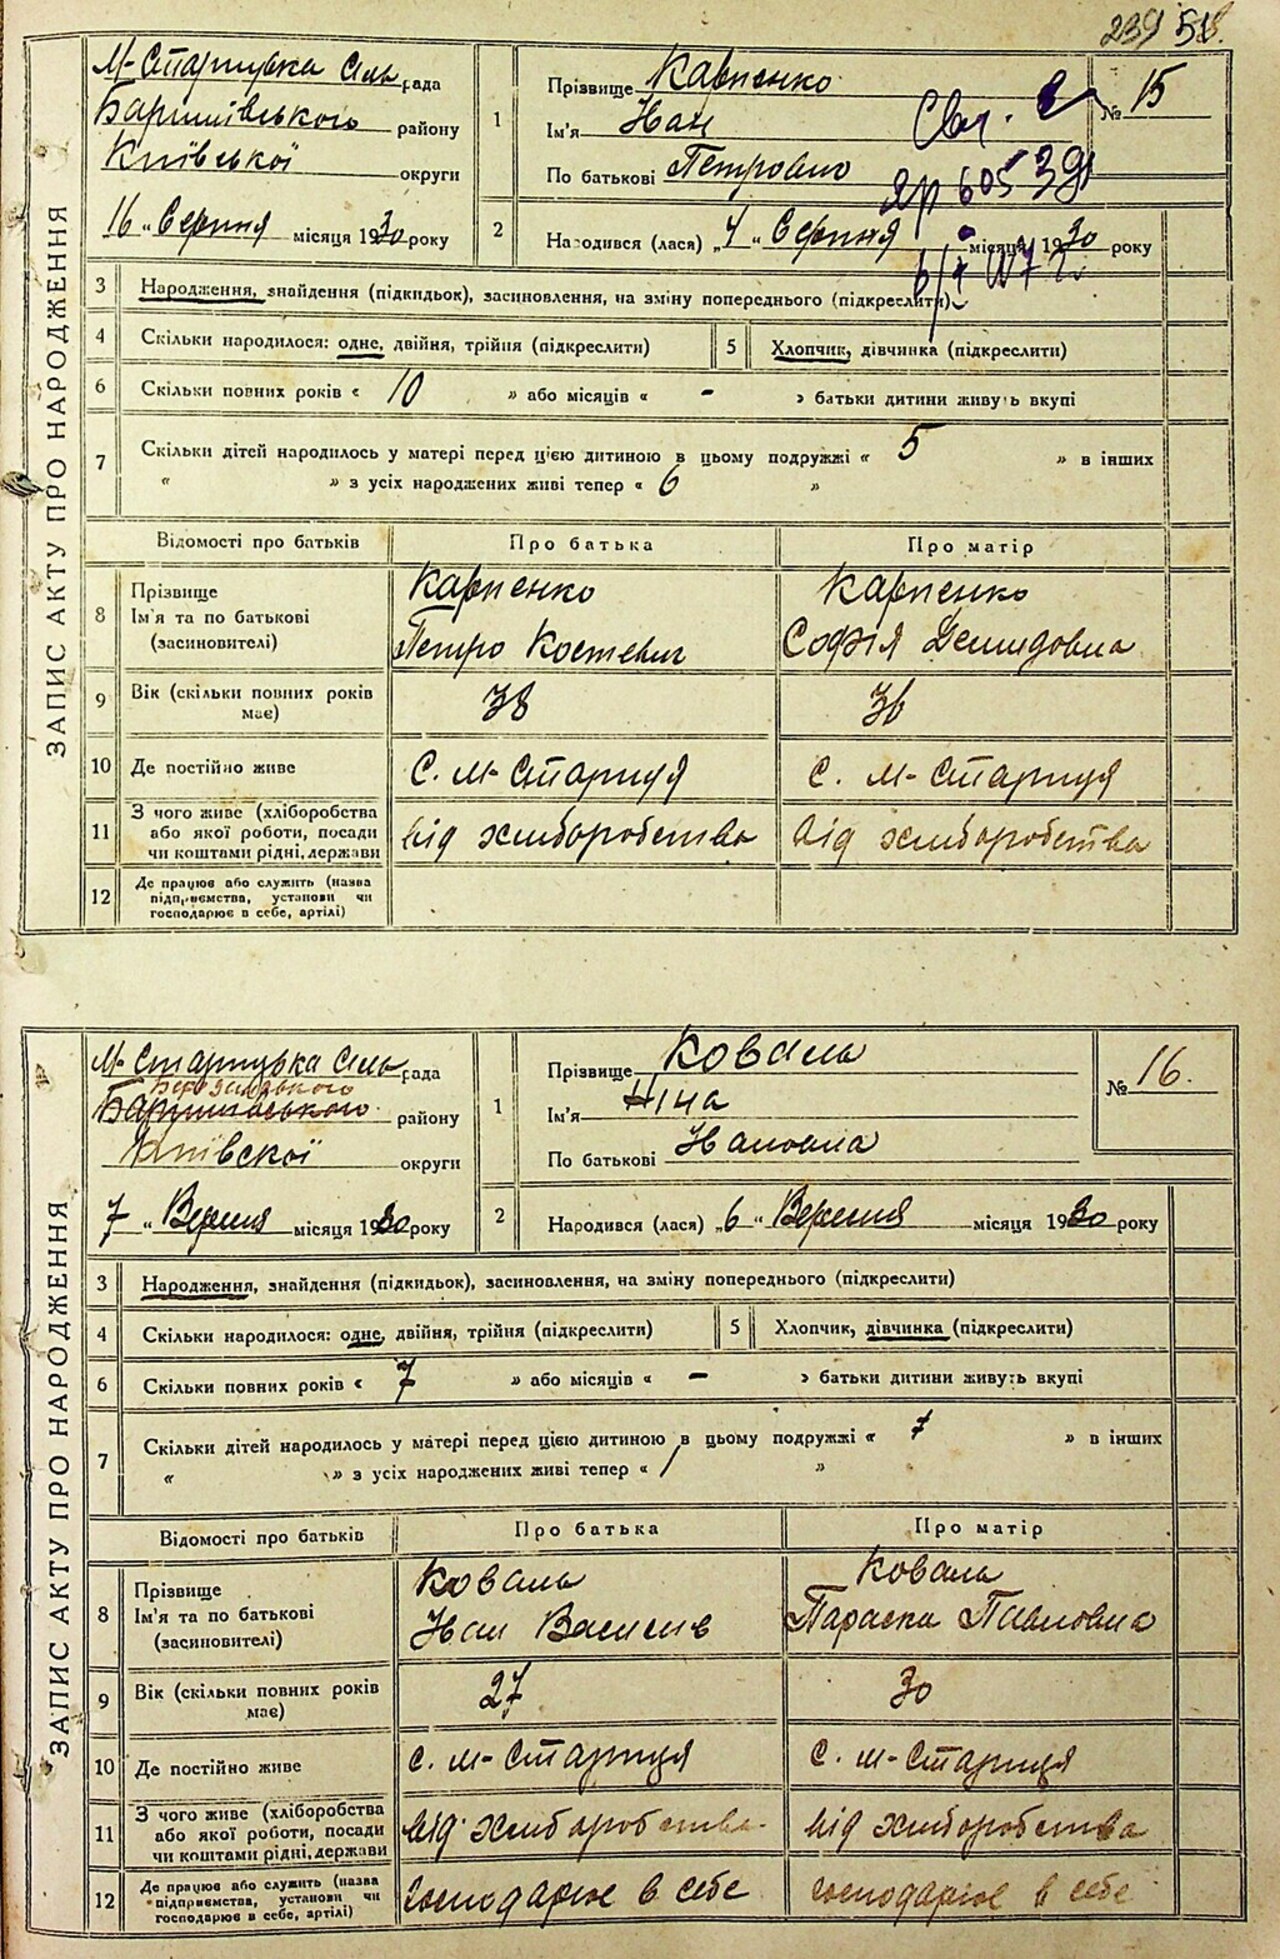 239 58.
ЗАПИС АКТУ ПРО НАРОДЖЕННЯ
М-Старицька Сіль рада
Баришівського району
Київської округи
16 „ Серпня місяця 1930 року
1
Прізвище Карпенко
Ім'я Іван
По батькові Петрович
№ 15
Свід.
ЯР 60539
2
Народився (лася) „ 4 „ Серпня місяця 1930 року
3 Народження, знайдення (підкидьок), засиновлення, на зміну попереднього (підкреслити)
4 Скільки народилося: одне, двійня, трійня (підкреслити)
5 Хлопчик, дівчинка (підкреслити)
6 Скільки повних років « 10 » або місяців « - » батьки дитини живуть вкупі
7 Скільки дітей народилось у матері перед цією дитиною в цьому подружжі « 5 » в інших
« » з усіх народжених живі тепер « 6 »
Відомості про батьків Про батька Про матір
8 Прізвище Ім'я та по батькові (засиновителі)
Карпенко Петро Костевич
Карпенко Софія Демидовна
9 Вік (скільки повних років має) 38 36
10 Де постійно живе с. М-Стариця с. М-Стариця
11 З чого живе (хліборобства або якої роботи, посади чи коштами рідні, держави
від хліборобства від хліборобства
12 Де працює або служить (назва підприємства, установи чи господарює в себе, артілі)
ЗАПИС АКТУ ПРО НАРОДЖЕННЯ
М-Старицька Сіль рада
Березанського
Баришівського району
Київскої округи
7 „ Вересня місяця 1930 року
1
Прізвище Коваль
Ім'я Ніна
По батькові Івановна
№ 16.
2
Народився (лася) „ 6 „ Вересня місяця 1930 року
3 Народження, знайдення (підкидьок), засиновлення, на зміну попереднього (підкреслити)
4 Скільки народилося: одне, двійня, трійня (підкреслити)
5 Хлопчик, дівчинка (підкреслити)
6 Скільки повних років « 7 » або місяців « - » батьки дитини живуть вкупі
7 Скільки дітей народилось у матері перед цією дитиною в цьому подружжі « » в інших
« » з усіх народжених живі тепер « 1 »
Відомості про батьків Про батька Про матір
8 Прізвище Ім'я та по батькові (засиновителі)
Коваль Іван Василів
Коваль Параска Павловна
9 Вік (скільки повних років має) 27 30
10 Де постійно живе с. М-Стариця с. М-Стариця
11 З чого живе (хліборобства або якої роботи, посади чи коштами рідні, держави
від хліборобства від хліборобства
12 Де працює або служить (назва підприємства, установи чи господарює в себе, артілі)
господарює в себе господарює в себе